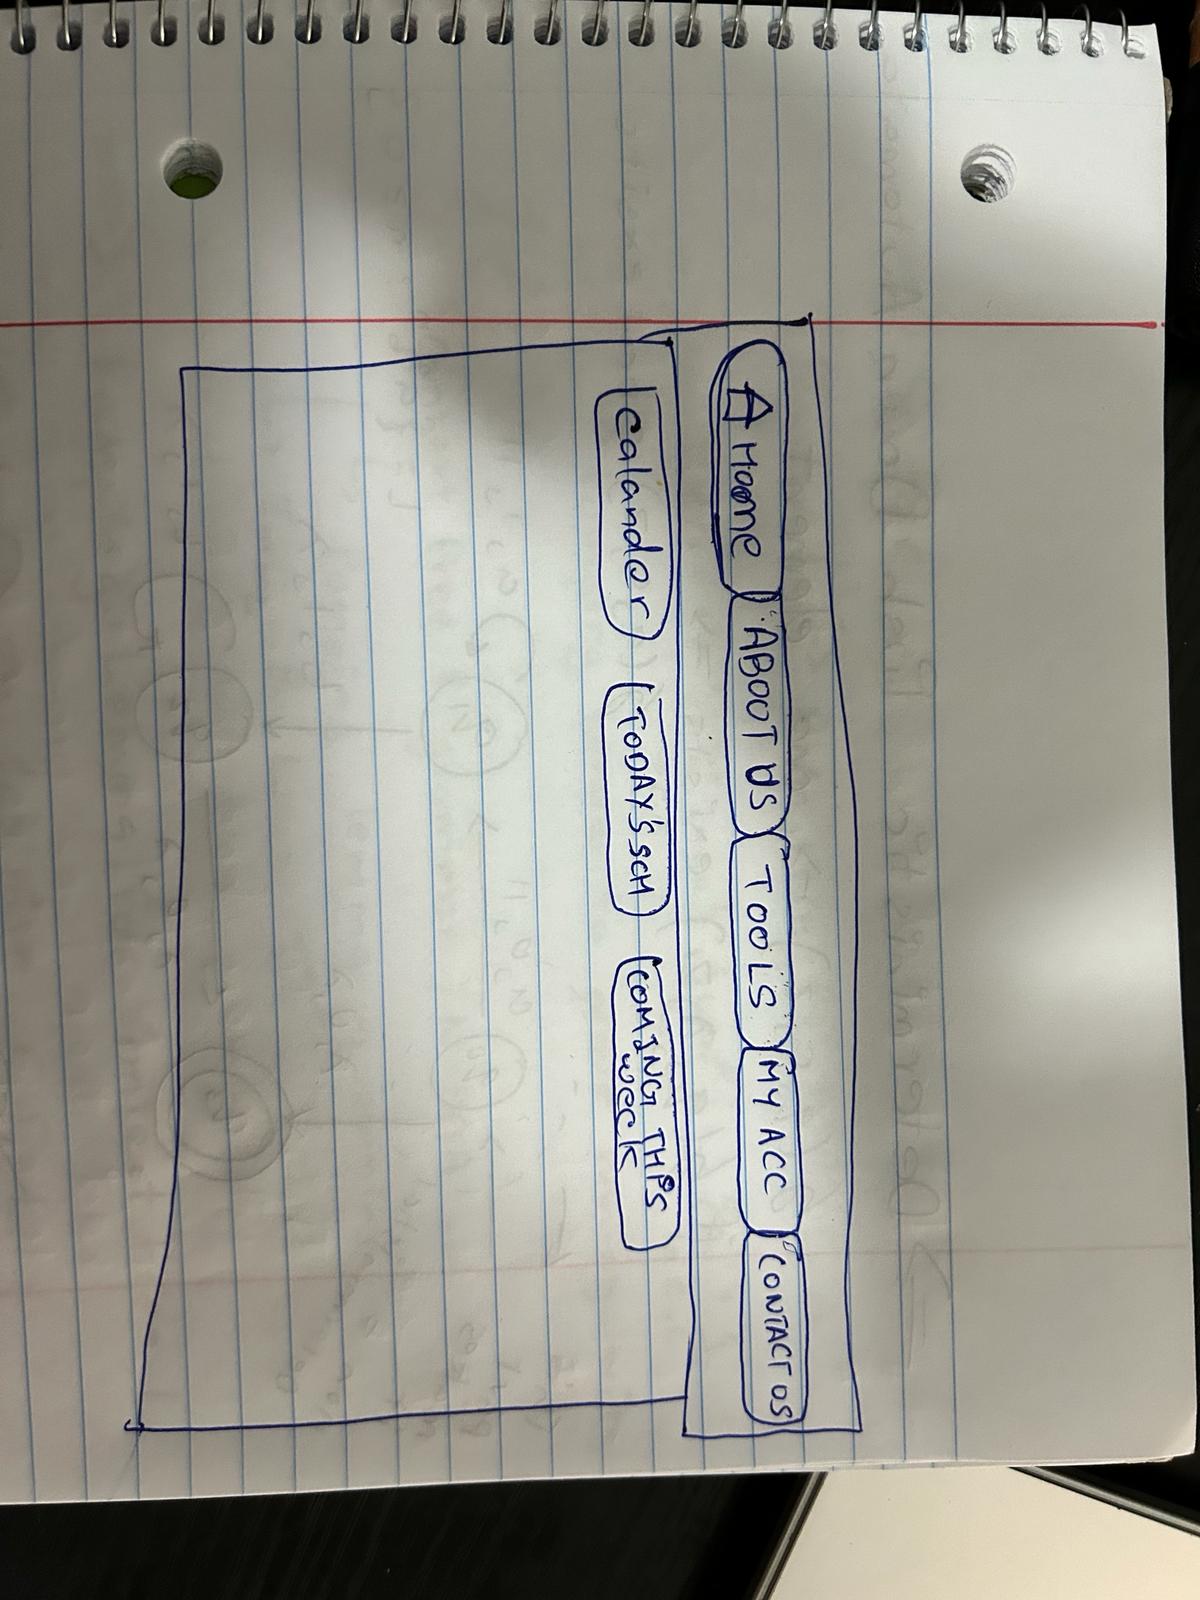 Home
ABOUT US
TOOLS
MY ACC
CONTACT US
Calander
TODAY'S SCH
COMING THIS
week